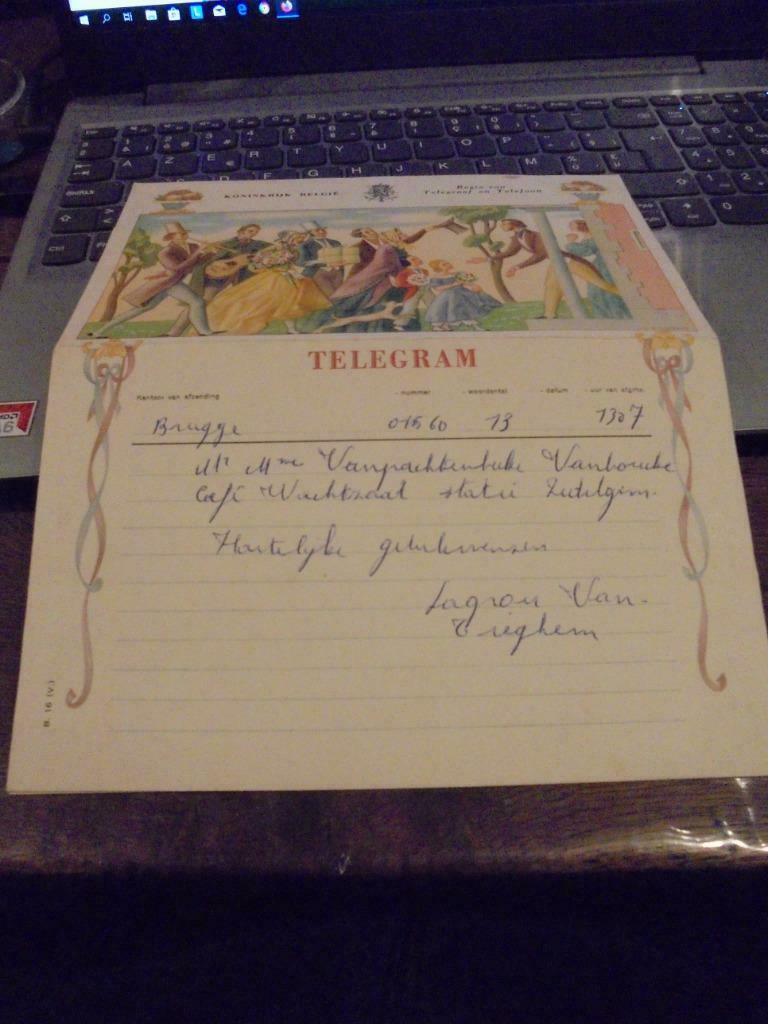 KONINKRIJK BELGIË
Regie van
Telegraaf en Telefoon
TELEGRAM
Kantoor van afzending nummer woordental datum uur van afgifte
Brugge 01560 13 1307
Mr Mme Vanpachtenbeke
Café Wachtzaal statie
Hartelijke gelukwensen
Lagrou Van-
Tieghem
B. 16 (V.)